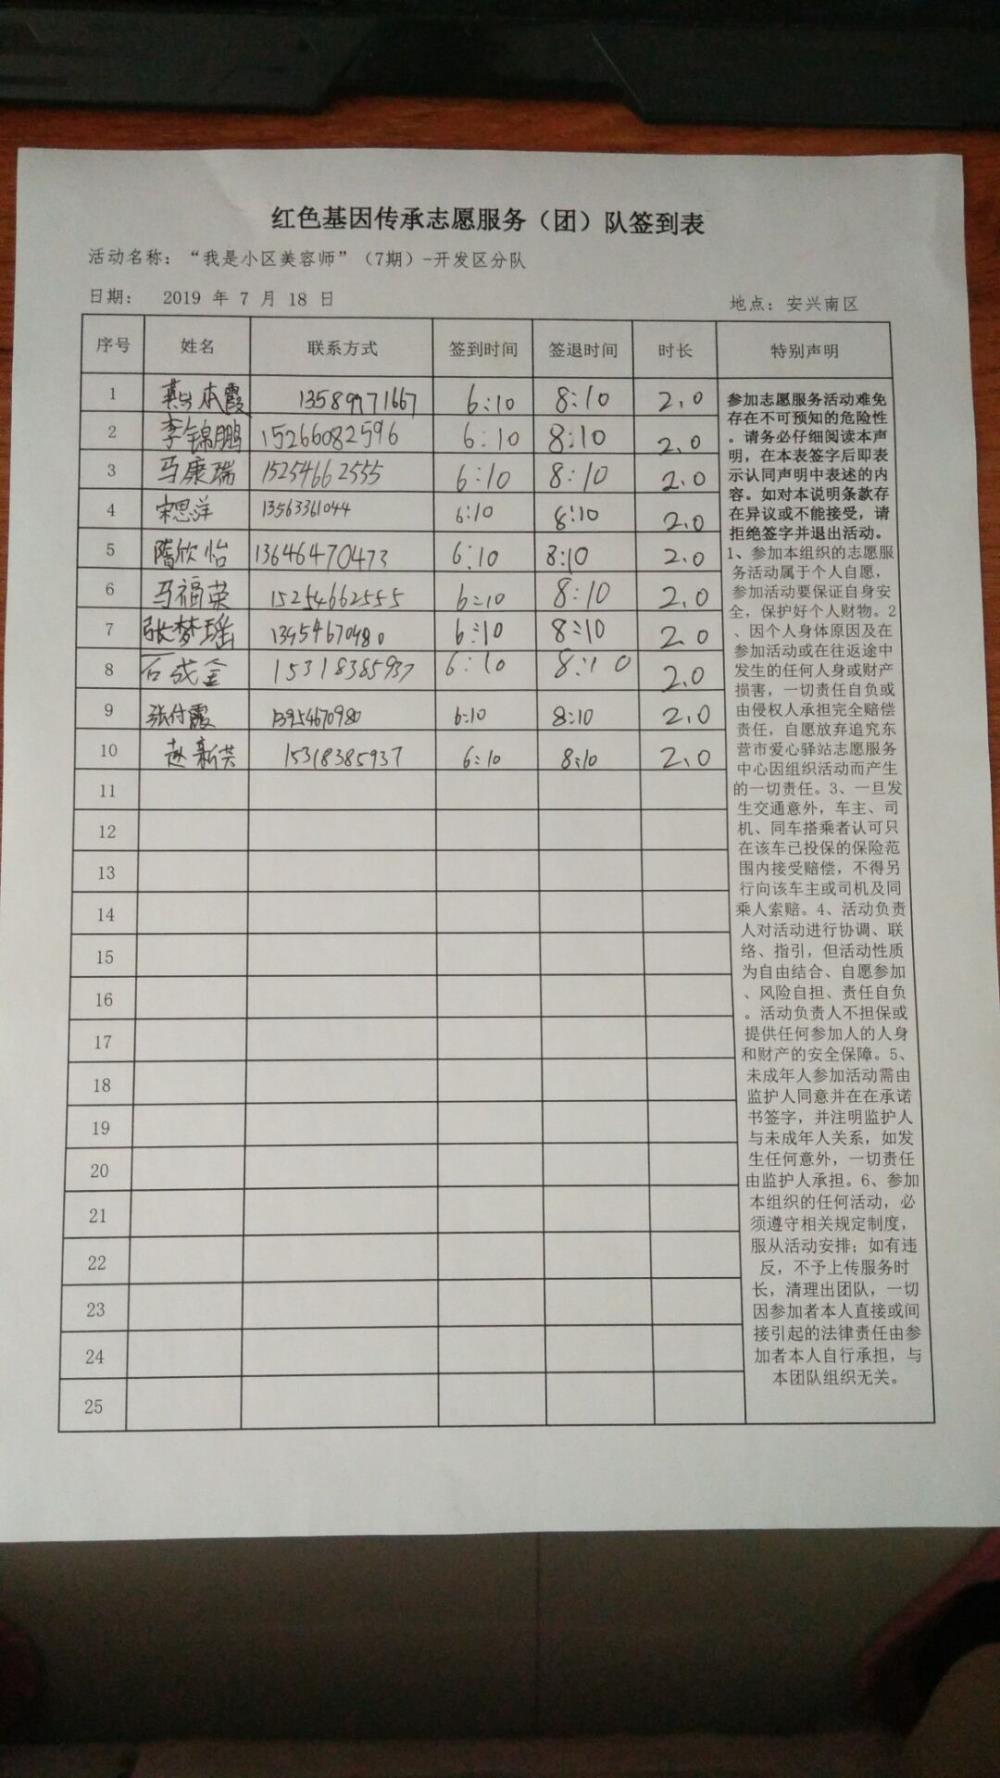 红色基因传承志愿服务（团）队签到表
活动名称：“我是小区美容师”（7期）-开发区分队
日期： 2019 年 7 月 18 日
地点：安兴南区
序号 姓名 联系方式 签到时间 签退时间 时长 特别声明
1 本霞 13589971667 6:10 8:10 2.0
2 李锦鹏 15266082596 6:10 8:10 2.0
3 马康瑞 15254662555 6:10 8:10 2.0
4 宋思洋 13563361044 6:10 8:10 2.0
5 隋欣怡 13646470473 6:10 8:10 2.0
6 马福荣 15254662555 6:10 8:10 2.0
7 张梦瑶 6:10 8:10 2.0
8 石成金 15318385937 6:10 8:10 2.0
9 张付霞 13954670980 6:10 8:10 2.0
10 赵新芸 15318385937 6:10 8:10 2.0
11
12
13
14
15
16
17
18
19
20
21
22
23
24
25
参加志愿服务活动难免
存在不可预知的危险性
。请务必仔细阅读本声
明，在本表签字后即表
示认同声明中表述的内
容。如对本说明条款存
在异议或不能接受，请
拒绝签字并退出活动。
1、参加本组织的志愿服
务活动属于个人自愿，
参加活动要保证自身安
全，保护好个人财物。2
、因个人身体原因及在
参加活动或在往返途中
发生的任何人身或财产
损害，一切责任自负或
由侵权人承担完全赔偿
责任，自愿放弃追究东
营市爱心驿站志愿服务
中心因组织活动而产生
的一切责任。3、一旦发
生交通意外，车主、司
机、同车搭乘者认可只
在该车已投保的保险范
围内接受赔偿，不得另
行向该车主或司机及同
乘人索赔。4、活动负责
人对活动进行协调、联
络、指引，但活动性质
为自由结合、自愿参加
、风险自担、责任自负
。活动负责人不担保或
提供任何参加人的人身
和财产的安全保障。5、
未成年人参加活动需由
监护人同意并在在承诺
书签字，并注明监护人
与未成年人关系，如发
生任何意外，一切责任
由监护人承担。6、参加
本组织的任何活动，必
须遵守相关规定制度，
服从活动安排；如有违
反，不予上传服务时
长，清理出团队，一切
因参加者本人直接或间
接引起的法律责任由参
加者本人自行承担，与
本团队组织无关。